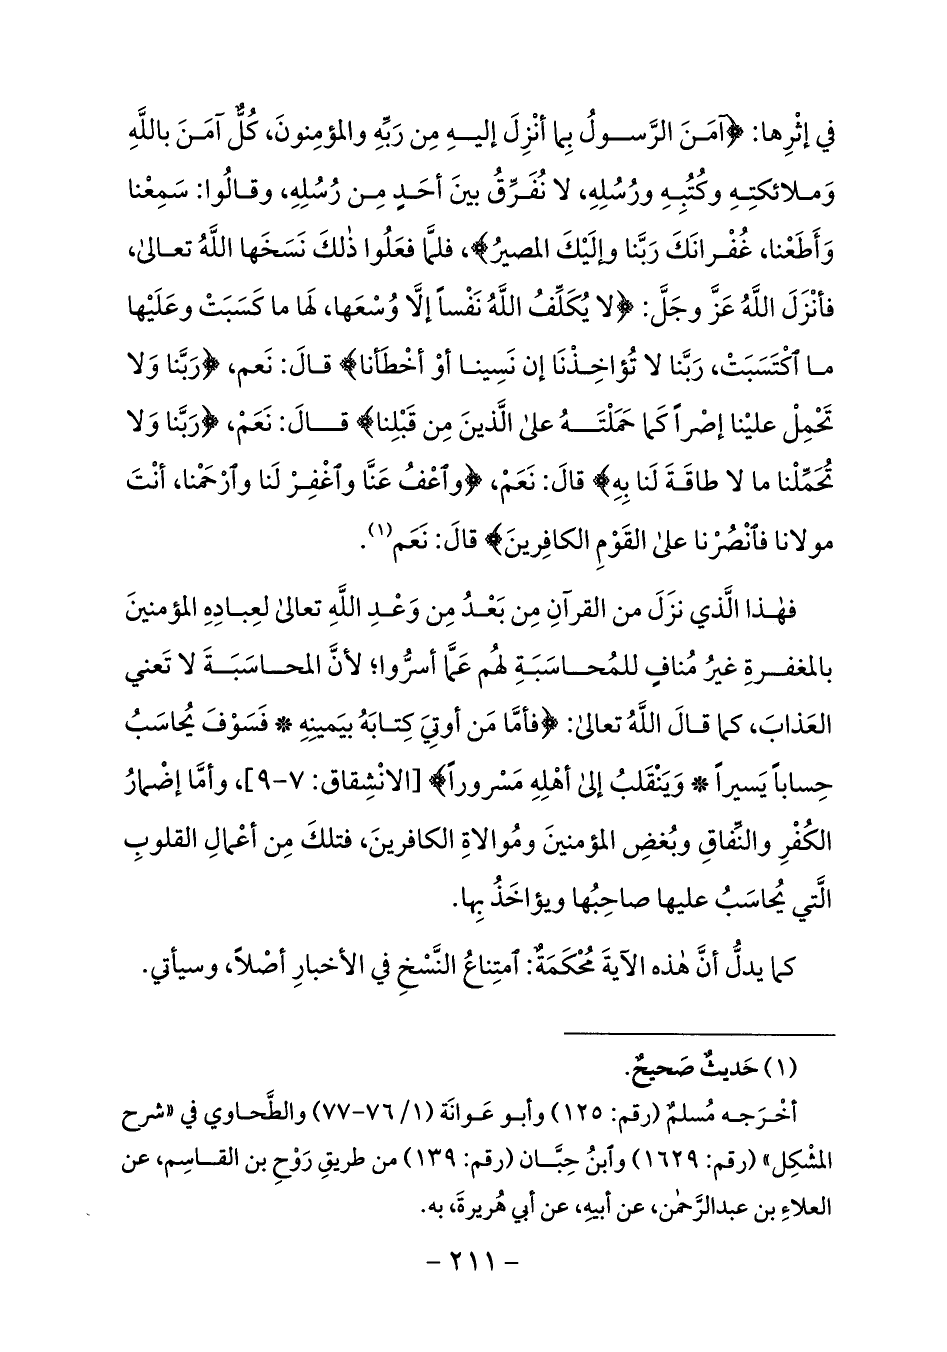 في إثْرِها: ﴿آمَـنَ الرَّســولُ بِما أنْزِلَ إليــهِ مِن رَبِّهِ والمؤمِنونَ، كُلٌّ آمَـنَ باللَّهِ
وَمـلائكتِـهِ وكُتُبِـهِ ورُسُلِهِ، لا نُفَـرِّقُ بينَ أحَـدٍ مِـن رُسُلِهِ، وقـالُوا: سَمِعْنا
وَأَطَعْنا، غُفْـرانَكَ رَبَّنا وإلَيْكَ المصيرُ﴾، فلمَّا فعَلُوا ذٰلكَ نَسَخَها اللَّهُ تعـالىٰ،
فأنْزَلَ اللَّهُ عَزَّ وجَلَّ: ﴿لا يُكَلِّفُ اللَّهُ نَفْساً إلَّا وُسْعَها، لَها ما كَسَبَتْ وعَلَيْها
مـا ٱكْتَسَبَتْ، رَبَّنا لا تُؤاخِـذْنَا إن نَسِينـا أوْ أخْطَأنا﴾ قـالَ: نَعم، ﴿رَبَّنا وَلا
تَحْمِلْ عليْنا إصْراً كَما حَمَلْتَــهُ علىٰ الَّذينَ مِن قَبْلِنا﴾ قــالَ: نَعَمْ، ﴿رَبَّنا وَلا
تُحَمِّلْنا ما لا طاقَـةَ لَنا بِهِ﴾ قالَ: نَعَمْ، ﴿وٱعْفُ عَنَّا وٱغْفِـرْ لَنا وٱرْحَمْنا، أنْتَ
مولانا فٱنْصُرْنا علىٰ القَوْمِ الكافِرِينَ﴾ قالَ: نَعَم(١).
فهٰـذا الَّذي نزَلَ من القرآنِ مِن بَعْـدُ مِن وَعْـدِ اللَّهِ تعالىٰ لعِبـادِهِ المؤمنينَ
بالمغفـرةِ غيرُ مُنافٍ للمُحـاسَبَةِ لهُم عَمَّا أسرُّوا؛ لأنَّ المحـاسَبَـةَ لا تَعني
العَذابَ، كما قـالَ اللَّهُ تعالىٰ: ﴿فأمَّا مَن أوتِيَ كِتابَهُ بيَمينِهِ * فَسَوْفَ يُحاسَبُ
حِساباً يَسيراً * وَيَنْقَلبُ إلىٰ أهْلِهِ مَسْروراً﴾ [الانْشِقاق: ٧-٩]، وأمَّا إضْمارُ
الكُفْرِ والنِّفاقِ وبُغضِ المؤمنينَ ومُوالاةِ الكافرينَ، فتلكَ مِن أعْمالِ القلوبِ
الَّتي يُحاسَبُ عليها صاحِبُها ويؤاخَذُ بِها.
كما يدلُّ أنَّ هٰذه الآيةَ مُحْكَمَةٌ: ٱمتِناعُ النَّسْخِ في الأخبارِ أصْلاً، وسيأتي.
(١) حَديثٌ صَحيحٌ.
أخْـرَجـه مُسلمٌ (رقم: ١٢٥) وأبـو عَـوانَة (١/ ٧٦-٧٧) والطَّحـاوي في «شرح
المشْكِل» (رقم: ١٦٢٩) وٱبنُ حِبَّـان (رقم: ١٣٩) من طريقِ رَوْحِ بن القـاسِم، عن
العلاءِ بن عبدالرَّحمٰن، عن أبيهِ، عن أبي هُريرةَ، به.
- ٢١١ -